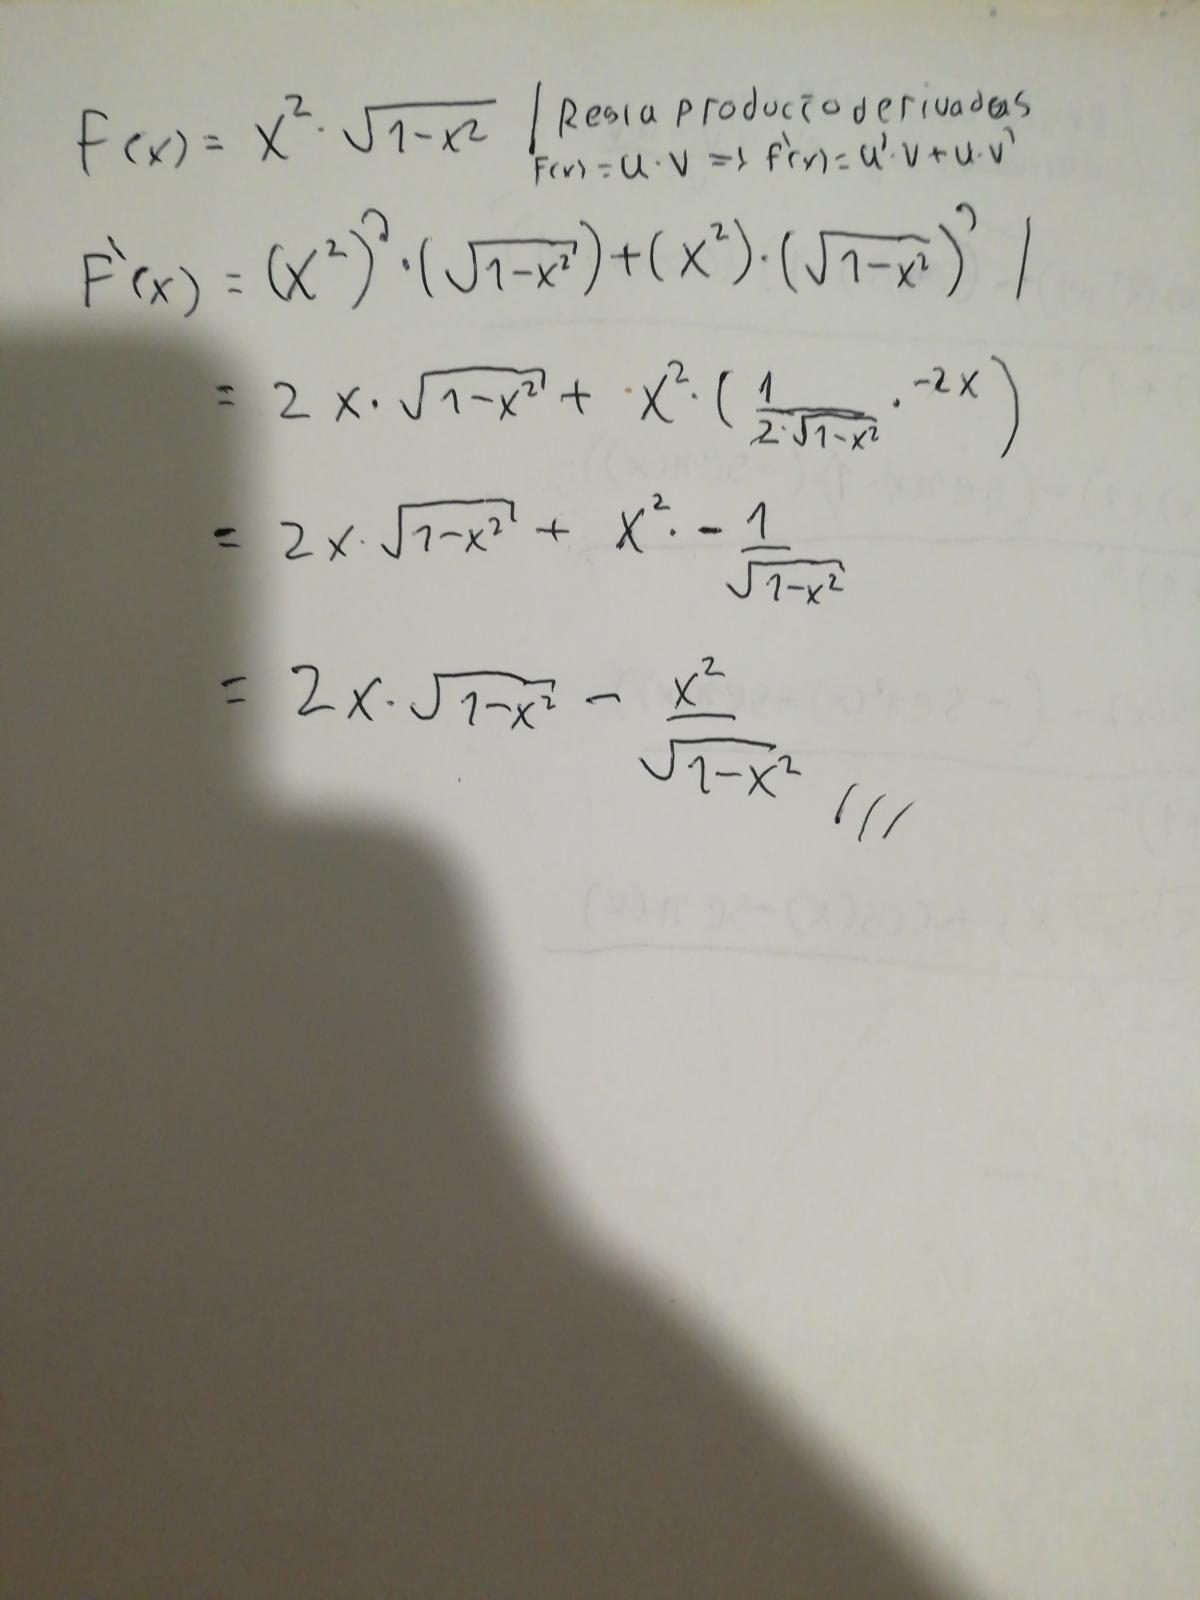 F(x) = x²·√(1-x²) | Regla producto derivadas
F(x) = u·v => f'(x) = u'·v + u·v'
F'(x) = (x²)'·(√(1-x²)) + (x²)·(√(1-x²))' |
= 2x·√(1-x²) + x²·(1/(2·√(1-x²))·-2x)
= 2x·√(1-x²) + x²·-1/√(1-x²)
= 2x·√(1-x²) - x²/√(1-x²) ///